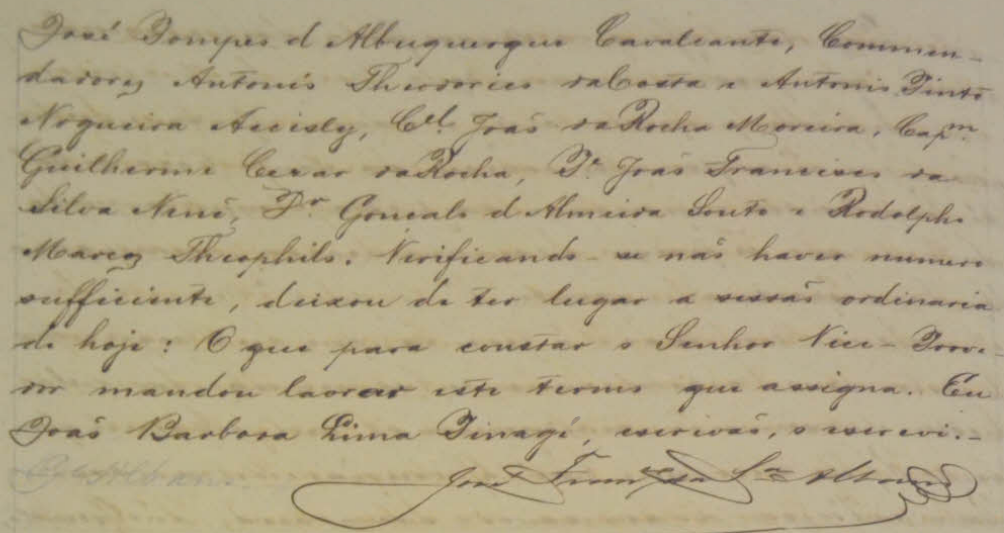 José Pompeo d Albuquerque Cavalcante, Commen-
dadores Antonio Theodorico da Costa e Antonio Pinto
Nogueira Accioly, Cel. João da Rocha Moreira, Capm.
Guilherme Cezar da Rocha, Pe João Francisco da
Silva Nené, Dr Gonçalo d Almeida Souto e Rodolpho
Marcos Theophilo. Verificando-se não haver numero
sufficiente, deixou de ter lugar a sessão ordinaria
de hoje: O que para constar o Senhor Vice-Prove-
dor mandou lavrar este termo que assigna. Eu
João Barbosa Lima Tinagé, escrivão, o escrevi.-
José Franco da Sa